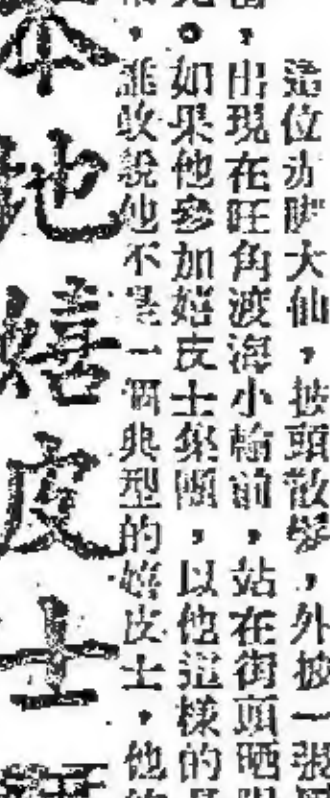 這位赤脚大仙，披頭散髮，外披一張
，出現在旺角渡海小輪前，站在街頭晒
。如果他參加嬉皮士集團，以他這樣的
，誰敢說他不是一個典型的嬉皮士，他
本地嬉皮士